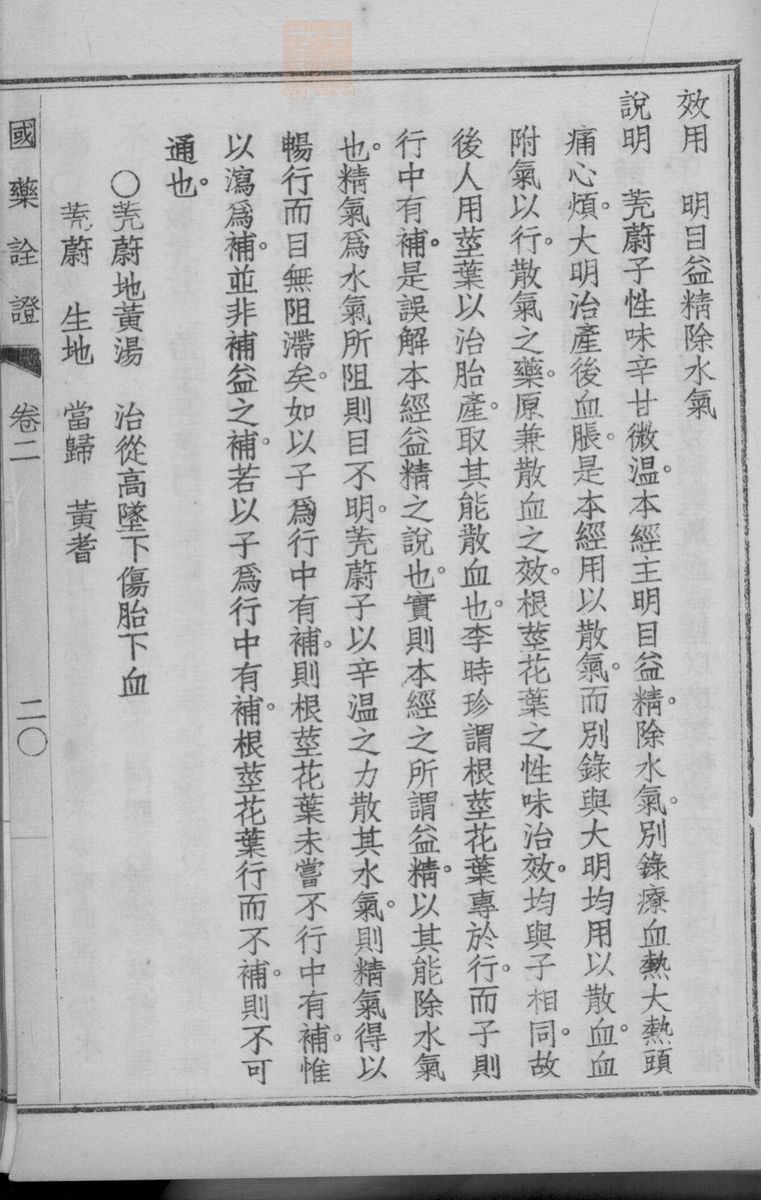 效用　明目益精除水氣
說明　茺蔚子性味辛甘微温。本經主明目益精。除水氣。別錄療血熱大熱頭
痛心煩。大明治產後血脹。是本經用以散氣。而別錄與大明均用以散血。血
附氣以行。散氣之藥。原兼散血之效。根莖花葉之性味治效。均與子相同。故
後人用莖葉以治胎產。取其能散血也。李時珍謂根莖花葉專於行。而子則
行中有補。是誤解本經益精之說也。實則本經之所謂益精。以其能除水氣
也。精氣爲水氣所阻則目不明。茺蔚子以辛温之力散其水氣。則精氣得以
暢行而目無阻滯矣。如以子爲行中有補。則根莖花葉未嘗不行中有補。惟
以瀉爲補。並非補益之補。若以子爲行中有補。根莖花葉行而不補。則不可
通也。
〇茺蔚地黃湯　治從高墜下傷胎下血
茺蔚　生地　當歸　黃耆
國藥詮證　卷二　二〇